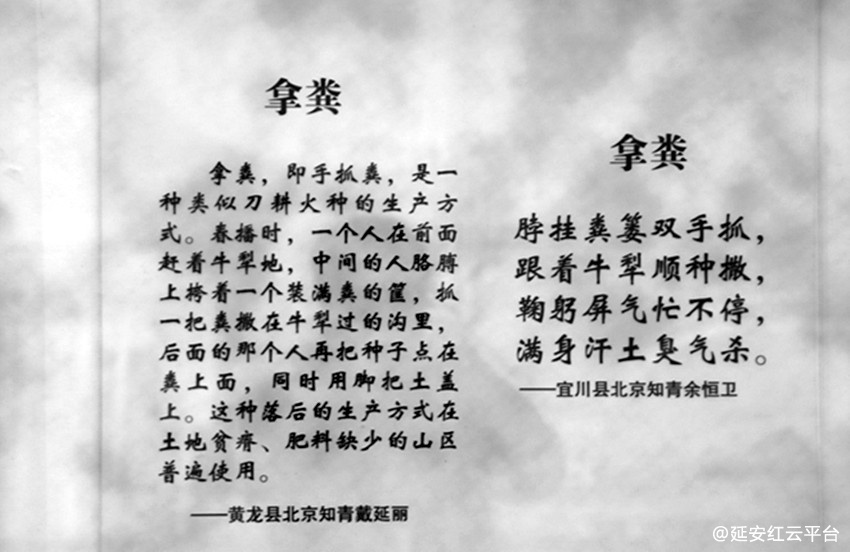 拿粪
拿粪，即手抓粪，是一
种类似刀耕火种的生产方
式。春播时，一个人在前面
赶着牛犁地，中间的人胳膊
上挎着一个装满粪的筐，抓
一把粪撒在牛犁过的沟里，
后面的那个人再把种子点在
粪上面，同时用脚把土盖
上。这种落后的生产方式在
土地贫瘠、肥料缺少的山区
普遍使用。
——黄龙县北京知青戴延丽
拿粪
脖挂粪篓双手抓，
跟着牛犁顺种撒，
鞠躬屏气忙不停，
满身汗土臭气杀。
——宜川县北京知青余恒卫
@延安红云平台